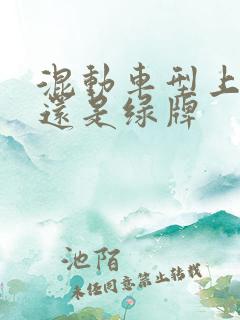 混動車型上
還是绿牌
池陌
未经同意禁止转载